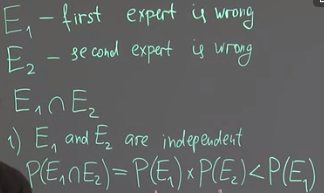 E₁ - first expert is wrong
E₂ - second expert is wrong
E₁ ∩ E₂
1) E₁ and E₂ are independent
P(E₁∩E₂) = P(E₁) × P(E₂) < P(E₁)